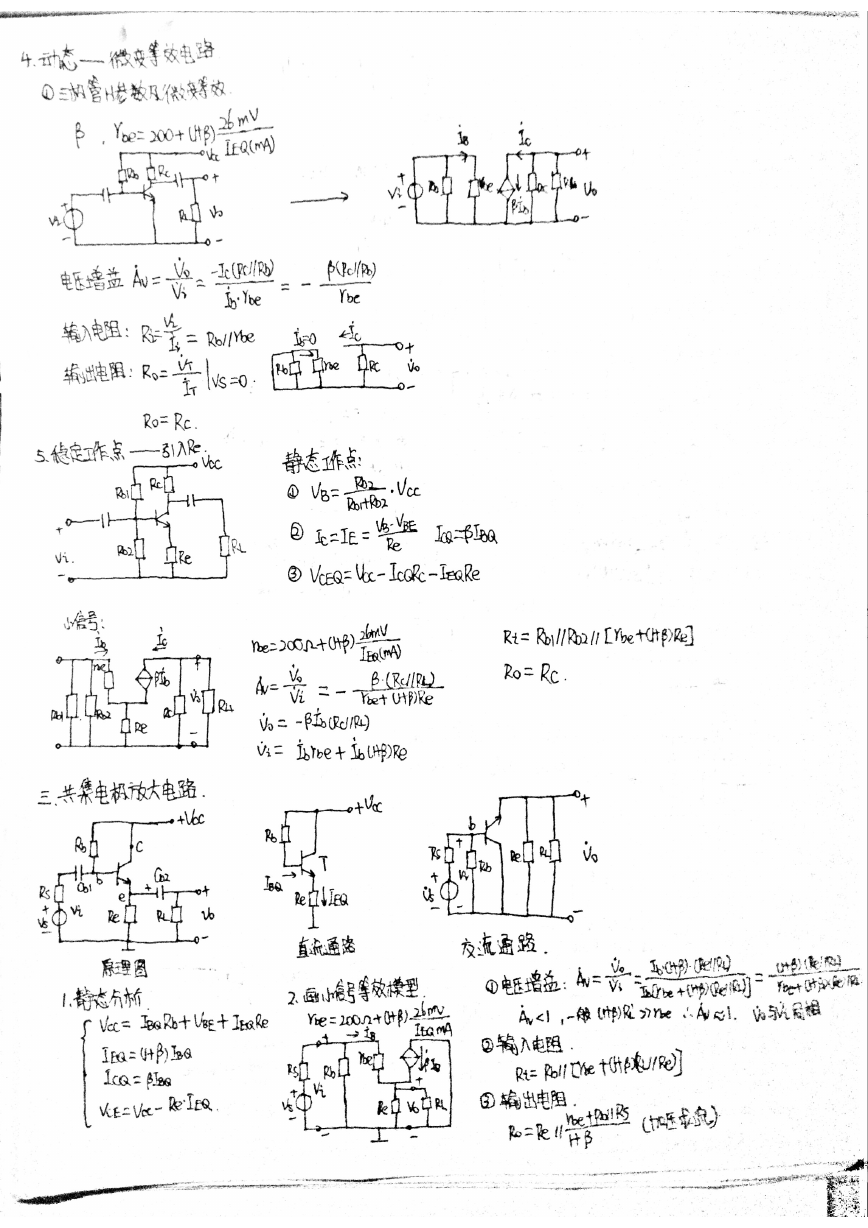 4.动态——微变等效电路
①三极管H参数及微变等效
β , rbe=200+(1+β) 26mV/IEQ(mA)
Vcc
Rb Rc + RL Vo Vi -
İB İC
Vi Rb rbe βİb Rc RL + Vo -
电压增益 Av = V̇o/V̇i = -Ic(Rc//Rb)/İb·rbe = - β(Rc//Rb)/rbe
输入电阻: Ri=Vi/Ii = Rb//rbe
İb=0 İc
输出电阻: Ro= V̇T/İT |Vs=0. Rb rbe Rc + V̇o -
Ro=Rc.
5.稳定工作点——引入Re.
Vcc
Rb1 Rc + Vi - Rb2 Re RL
静态工作点:
① VB= Rb2/(Rb1+Rb2) ·Vcc
② Ic=IE= (VB-VBE)/Re ICQ=βIBQ
③ VCEQ=Vcc-ICQRc-IEQRe
小信号:
İB İC
rbe βİb Rb1 Rb2 Re Rc + V̇o - RL
rbe=200Ω+(1+β) 26mV/IEQ(mA)
Av= V̇o/V̇i = - β·(Rc//RL)/(rbe+(1+β)Re)
V̇o = -βİb(Rc//RL)
V̇i = İbrbe+İb(1+β)Re
Ri= Rb1//Rb2//[rbe+(1+β)Re]
Ro= Rc.
三.共集电极放大电路.
+Vcc
Rb C Cb1 b e + Cb2 Rs + Vs - Vi Re RL + Vo -
原理图
+Vcc
Rb T IBQ Re IEQ
直流通路
b Rs + V̇s - Vi Rb Re RL + V̇o -
交流通路.
1.静态分析.
Vcc= IBQRb+VBE+IEQRe
IEQ=(1+β)IBQ
ICQ=βIBQ
VCE=Vcc-Re·IEQ.
2.画小信号等效模型
rbe=200Ω+(1+β)·26mV/IEQmA
İB
Rs Rb rbe βİb + Vs - Vi Re Vo RL
①电压增益: Av= V̇o/V̇i = İb(1+β)·(Re//RL)/İb[rbe+(1+β)(Re//RL)] = (1+β)(Re//RL)/rbe+(1+β)(Re//RL)
Av<1, 一般(1+β)Ri>>rbe ∴Av≈1. V̇o与V̇i同相
②输入电阻.
Ri= Rb//[rbe+(1+β)RL//Re]
③输出电阻.
Ro=Re// (rbe+Rb//Rs)/(1+β) (加压求流)